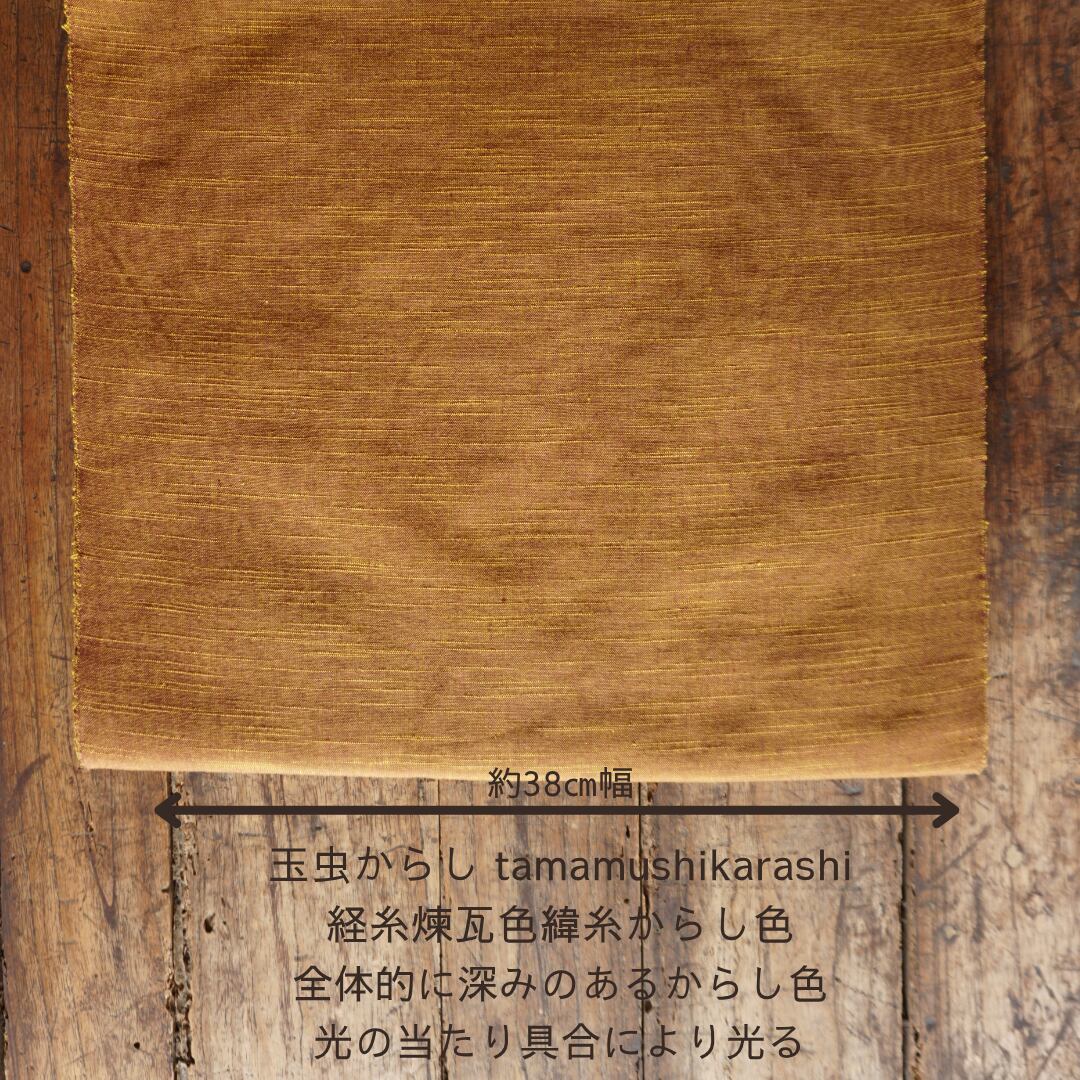 約38㎝幅
玉虫からし tamamushikarashi
経糸煉瓦色緯糸からし色
全体的に深みのあるからし色
光の当たり具合により光る